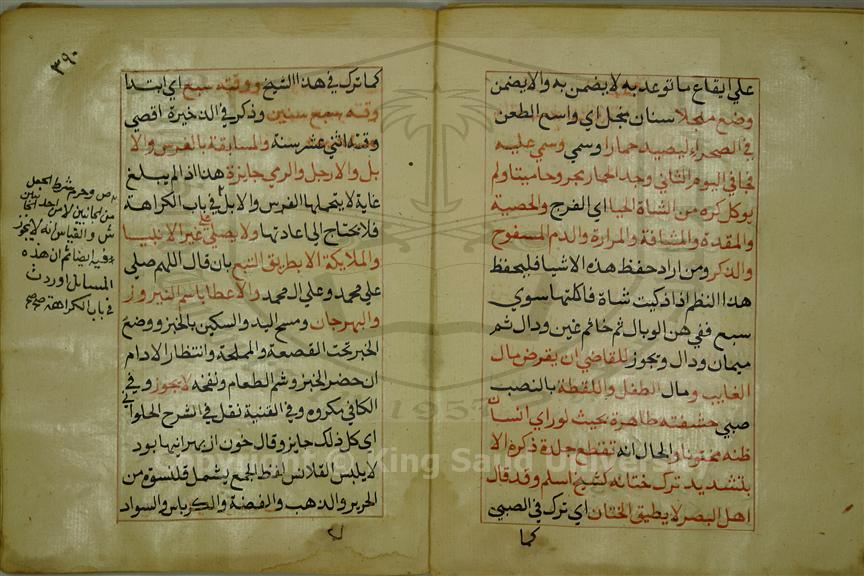 علي ايقاع ما توعد به لا يضمن به والا يضمن
وضع منجلا سنان منجل اي واسع الطعن
في الصحراء ليصيد حمارا وسمي وسمي عليه
فجا في اليوم الثاني وجد الحمار مجروحا ميتا ولم
يوكل كره من الشاة الحيا اي الفرج والخصية
والغدة والمثانة والمرارة والدم المسفوح
والذكر ومن اراد حفظ هذه الاشيا فليحفظ
هذا النظم اذا ذكيت شاة فاكلتها سوي
سبع ففي هن الوبال ثم خا ثم غين ودال ثم
ميمان ودال ويجوز للقاضي ان يقرض مال
الغايب ومال الطفل واللقطة بالنصب
صبي حشفته ظاهرة بحيث لو راي انسان
ظنه مختونا والحال انه تقطع جلدة ذكره الا
بتشديد ترك ختانه كشيخ اسلم وقد قال
اهل البصر لا يطيق الختان اي ترك في الصبي
كما
٣٩٠
كما ترك في هذا الشيخ ووقته سبع اي ابتدا
وقته سبع سنين وذكر في الذخيرة اقصي
وقته اثني عشر سنة والمسابقة بالفرس والا
بل والارجل والرمي جايزة هذا اذا لم يبلغ
غاية لا يتحملها الفرس والابل في باب الكراهة
فلا يحتاج الي اعادتها ولا يصلي علي غير الانبيا
والملايكة الا بطريق التبع بان قال اللهم صلي
علي محمد وعلي ال محمد والاعطا باسم النيروز
والمهرجان ومسح اليد والسكين بالخبز ووضع
الخبز تحت القصعة والمملحة وانتظار الادام
ان حضر الخبز وشم الطعام ونفخه لا يجوز وفي
الكافي مكروه وفي القنية نقل في الشرح الحلواني
اي كل ذلك جايز وقال
لا يلبس القلانس لفظ الجمع يشمل قلنسوة من
الحرير والذهب والفضة والكرباس والسواد
ص وحرم شرط الجعل
من الجانبين لا من احد الجانبين
ش والقياس انه لا يجوز
فيه ايضا ثم ان هذه
المسايل اوردت
في باب الكراهة
Copyright © King Saud University
1957